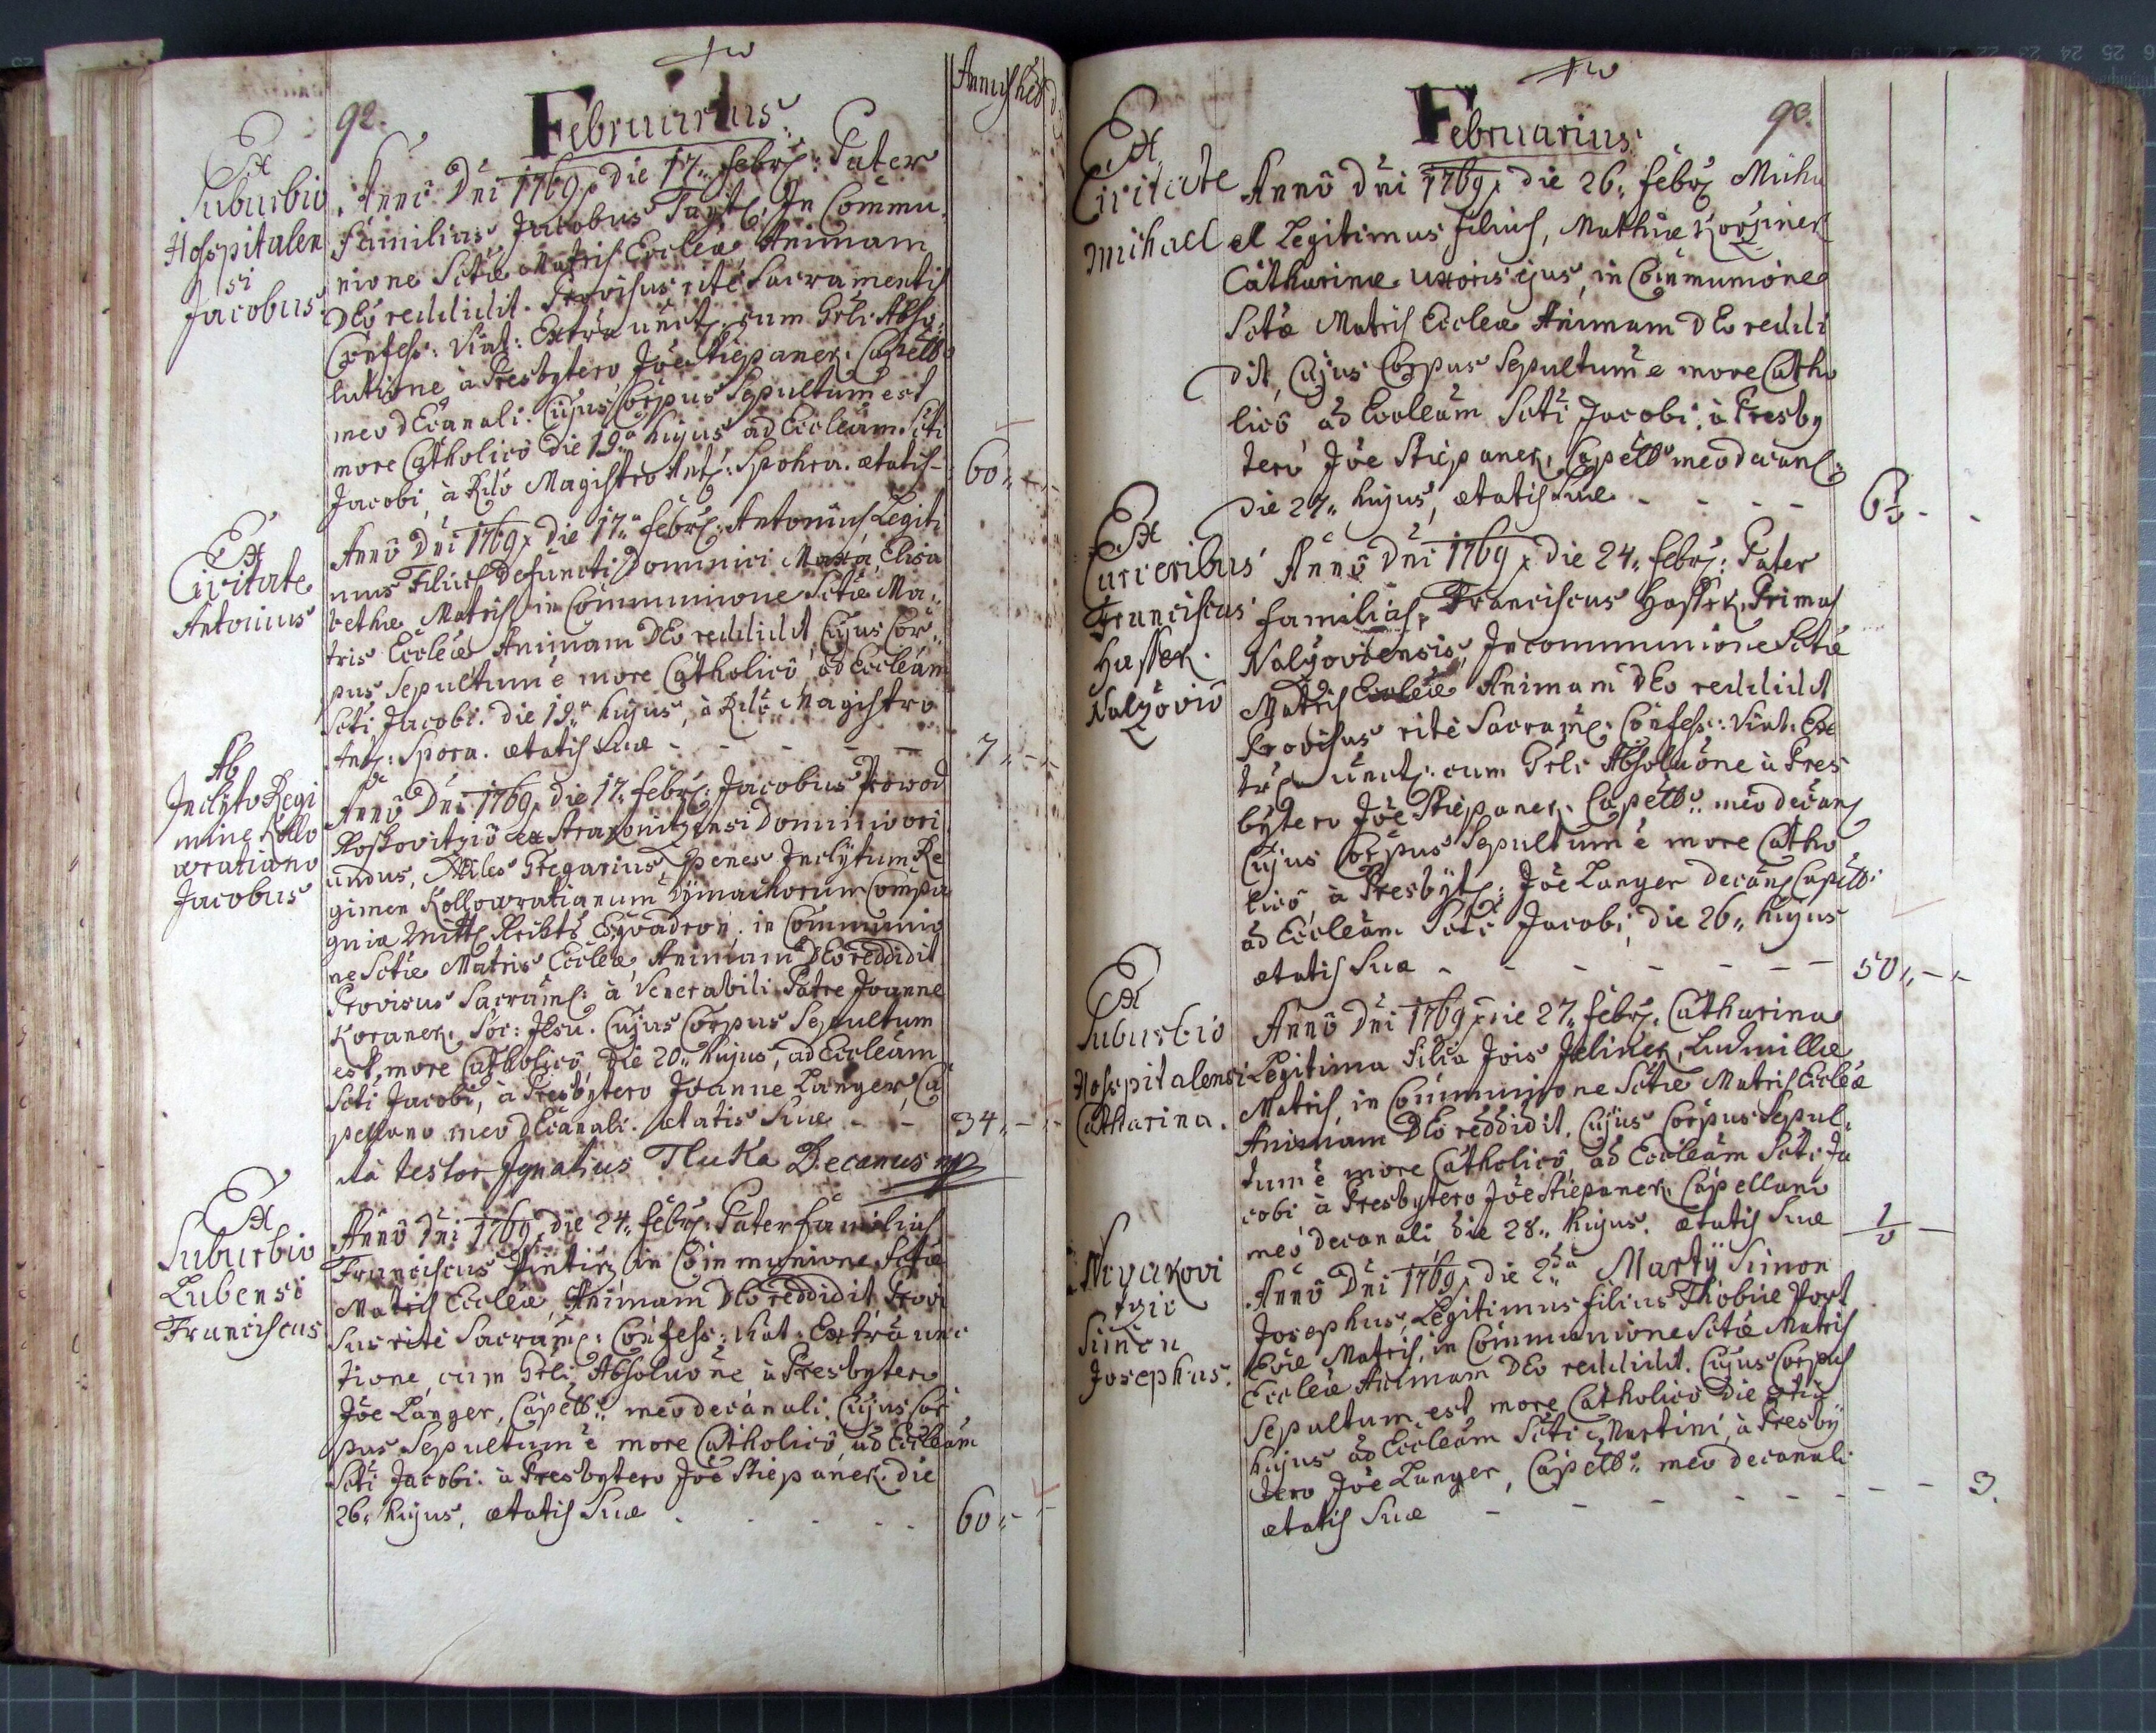 92.
Februarius
Annus heb d
Ex Suburbio Hospitalensi Jacobus
Annô Dñi 1769. die 17. febr: Pater
familias Jacobus in Commu
nione Sctæ Matris Eccleæ Animam
DEo reddidit. Provisus rite Sacramentis
Confess: Viat: Extra unct. cum Grli Abso
lutione à Presbytero Jõe Stiepanek. Capello
meo dEcanali. Cujus Corpus Sepultum est
more Catholicô die 19a hujus ad Eccleam Scti
Jacobi, à Rdo Magistro Ant: Spohra. ætatis - 60
Ex Civitate Antonius
Annô Dñi 1769. die 17a febr: Antonius Legiti
mus Filius Defuncti Dominici Elisa
bethæ Matris in Communione Sctæ Ma
tris Eccleæ Animam DEo reddidit Cujus Cor
pus Sepultum ẽ more Catholicô, ad Eccleam
Scti Jacobi. die 19a hujus, à Rdo Magistro
Ant: Spora. ætatis Suæ - - - - 7
Ab Inclyto Regi mine Kollo wratiano Jacobus
Annô Dñi 1769. die 17. febr: Jacobus
ex Strakonitzensi Dominio ori
undus, Miles Gregarius, penes Inclytum Re
gimen Kollowratianum Compa
gniæ in Communio
ne Sctæ Matris Eccleæ Animam DEo reddidit
Provisus Sacram: à Venerabili Patre Joanne
Koranek. Soc: Jesu. Cujus Corpus Sepultum
est, more Catholicô, Die 20. hujus, ad Eccleam
Scti Jacobi, à Presbytero Joanne Langer, Ca
pellano meo dEcanali. ætatis Suæ - - 34
ita testor Ignatius Tluka Decanus mp
Ex Suburbio Lubensi Franciscus
Annô Dñi 1769. die 24. febr: Pater familias
Franciscus in Communione Sctæ
Matris Eccleæ, Animam DEo reddidit, Provi
sus rite Sacram: Confess: Viat: Extra unc
tione, cum Grli, Absoluõne à Presbytero
Jõe Langer, Capello meo decanali. Cujus Cor
pus Sepultum ẽ more Catholicô, ad Eccleam
Scti Jacobi. à Presbytero Jõe Stiepanek. die
26. hujus, ætatis Suæ - - - 60
Februarius.
93.
Ex Civitate Michael
Annô Dñi 1769. die 26. febr: Micha
el Legitimus filius, Mathiæ
Catharinæ uxoris ejus, in Communione
Sctæ Matris Eccleæ Animam DEo reddi
dit, Cujus Corpus Sepultum ẽ more Catho
licô ad Eccleam Scti Jacobi. à Presby
tero Jõe Stiepanek, Capello meo decan:
die 27. hujus, ætatis Suæ - - - -
Ex Carceribus Franciscus Hassek. Nalzovio
Annô Dñi 1769. die 24. febr: Pater
familias, Franciscus Hassek. Primas
Nalzoviensis, In communione Sctæ
Matris Eccleæ Animam DEo reddidit
Provisus rite Sacram: Confess: Viat: Ex
tra unct. cum Grli Absoluõne à Pres
bytero Jõe Stiepanek. Capello meo decan:
Cujus Corpus Sepultum ẽ more Catho
licô, à Presbyt: Jõe Langer decan: Capello
ad Eccleam Scti Jacobi, die 26. hujus
ætatis Suæ - - - - - - 50
Ex Suburbio Hospitalensi Catharina.
Annô Dñi 1769. die 27. febr. Catharina
Legitima filia Jois Jelinek, Ludmillæ
Matris, in Communione Sctæ Matris Eccleæ
Animam DEo reddidit, Cujus Corpus Sepul
tum ẽ more Catholicô, ad Eccleam Scti Ja
cobi à Presbytero Jõe Stiepanek. Capellano
meo decanali die 28. hujus. ætatis Suæ
Simon Josephus.
Annô Dñi 1769. die 2da Martÿ Simon
Josephus, Legitimus filius Thobiæ
Evæ Matris, in Communione Sctæ Matris
Eccleæ Animam DEo reddidit. Cujus Corpus
Sepultum est more Catholicô die
hujus ad Eccleam Scti Martini, à Presby
tero Jõe Langer, Capello meo decanali
ætatis Suæ - - - - - - - 3.